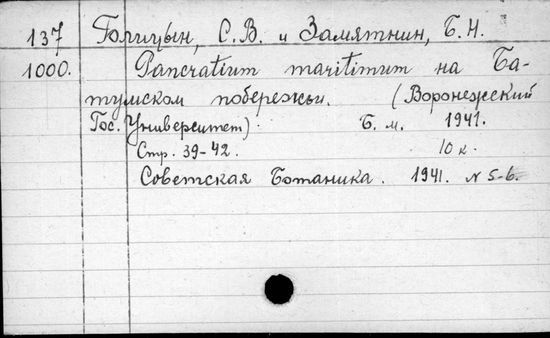 137 Голицын, С.В. и Замятнин, Б.Н.
1000. Pancratium maritimum на Ба-
тумском побережьи. (Воронежский
Гос. Университет). Б. м. 1941.
Стр. 39-42. 10 к.
Советская Ботаника. 1941. N 5-6.